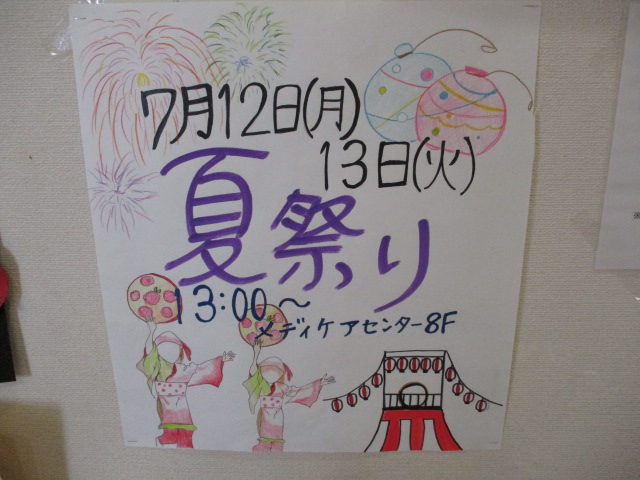 7月12日(月)
13日(火)
夏祭り
13:00～
メディケアセンター8F